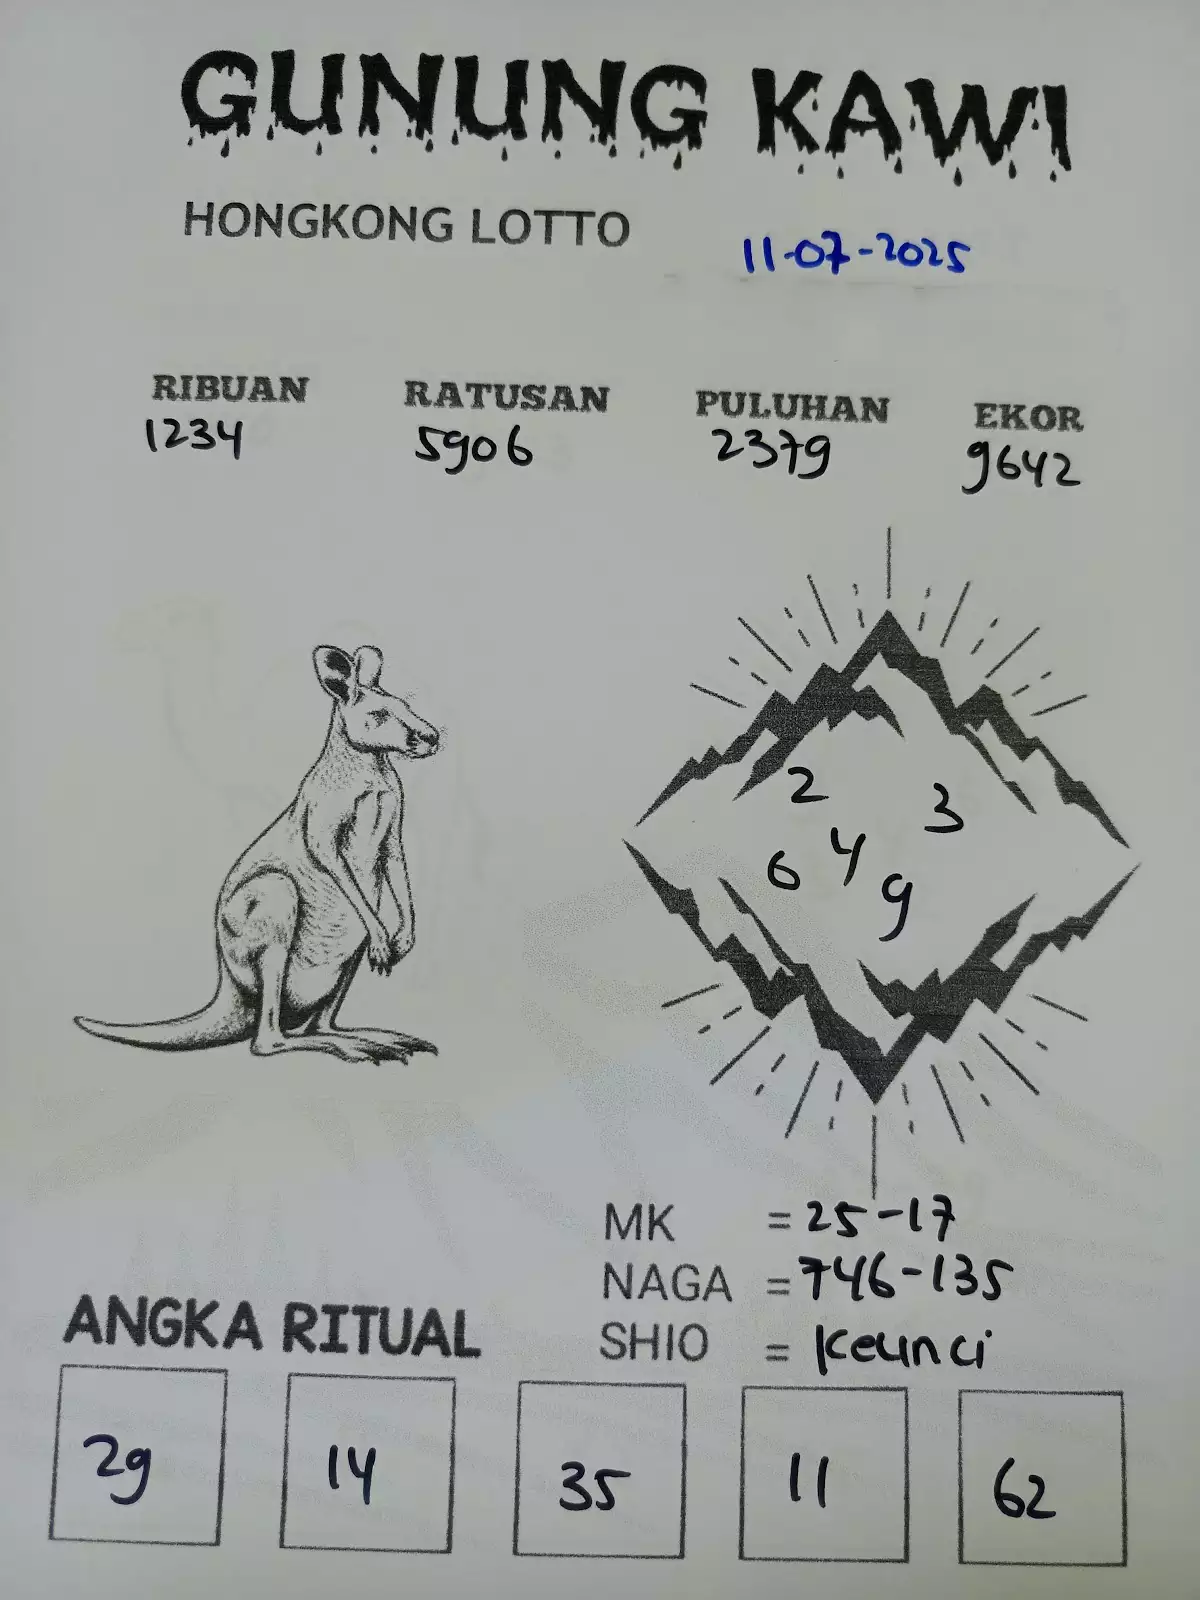 GUNUNG KAWI
HONGKONG LOTTO
11-07-2025
RIBUAN RATUSAN PULUHAN EKOR
1234 5906 2379 9642
2 3
6 4 9
MK = 25-17
NAGA = 746-135
SHIO = Kelinci
ANGKA RITUAL
29 14 35 11 62